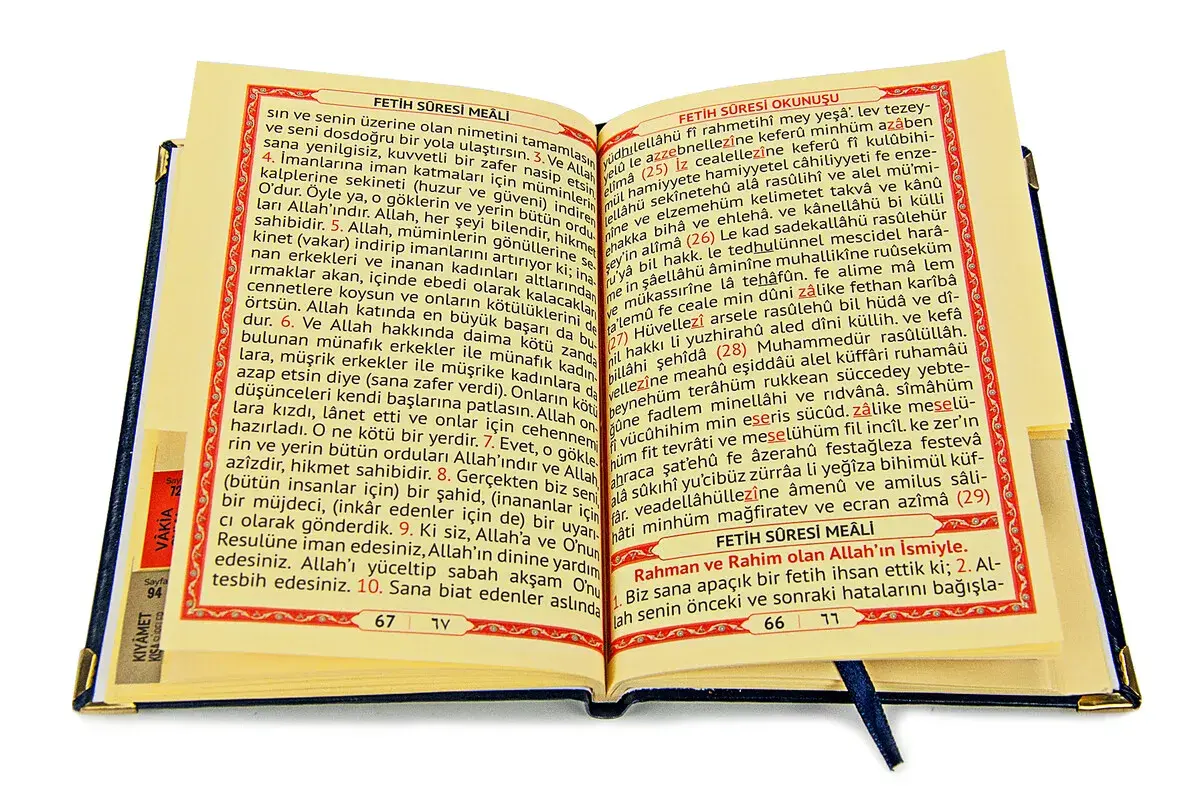 FETİH SÛRESİ OKUNUŞU
yüdhılellâhü fî rahmetihî mey yeşâ'. lev tezey-
yelû le azzebnellezîne keferû minhüm azâben
elîmâ (25) İz cealellezîne keferû fî kulûbihi-
mül hamiyyete hamiyyetel câhiliyyeti fe enze-
lellâhü sekînetehû alâ rasûlihî ve alel mü'mi-
nîne ve elzemehüm kelimetet takvâ ve kânû
ehakka bihâ ve ehlehâ. ve kânellâhü bi külli
şey'in alîmâ (26) Le kad sadekallâhü rasûlehür
ru'yâ bil hakk. le tedhulünnel mescidel harâ-
me in şâellâhü âminîne muhallikîne ruûseküm
ve mükassırîne lâ tehâfûn. fe alime mâ lem
ta'lemû fe ceale min dûni zâlike fethan karîbâ
(27) Hüvellezî arsele rasûlehû bil hüdâ ve dî-
nil hakkı li yuzhirahû aled dîni küllih. ve kefâ
billâhi şehîdâ (28) Muhammedür rasûlüllâh.
vellezîne meahû eşiddâü alel küffâri ruhamâü
beynehüm terâhüm rukkean succedey yebte-
ğûne fadlem minellâhi ve rıdvânâ. sîmâhüm
fî vücûhihim min eseris sücûd. zâlike meselü-
hüm fit tevrâti ve meselühüm fil incîl. ke zer'ın
ahraca şat'ehû fe âzerahû festağleza festevâ
alâ sûkıhî yu'cibüz zürrâa li yeğîza bihimül küf-
fâr. veadellâhüllezîne âmenû ve amilus sâli-
hâti minhüm mağfiratev ve ecran azîmâ (29)
FETİH SÛRESİ MEÂLİ
Rahman ve Rahim olan Allah'ın İsmiyle.
1. Biz sana apaçık bir fetih ihsan ettik ki; 2. Al-
lah senin önceki ve sonraki hatalarını bağışla-
66 ٦٦
FETİH SÛRESİ MEÂLİ
sın ve senin üzerine olan nimetini tamamlasın
ve seni dosdoğru bir yola ulaştırsın. 3. Ve Allah
sana yenilgisiz, kuvvetli bir zafer nasip etsin
4. İmanlarına iman katmaları için müminlerin
kalplerine sekineti (huzur ve güveni) indiren
O'dur. Öyle ya, o göklerin ve yerin bütün ordu-
ları Allah'ındır. Allah, her şeyi bilendir, hikmet
sahibidir. 5. Allah, müminlerin gönüllerine se-
kinet (vakar) indirip imanlarını artırıyor ki; ina-
nan erkekleri ve inanan kadınları altlarından
ırmaklar akan, içinde ebedi olarak kalacakları
cennetlere koysun ve onların kötülüklerini de
örtsün. Allah katında en büyük başarı da bu-
dur. 6. Ve Allah hakkında daima kötü zanda
bulunan münafık erkekler ile münafık kadın-
lara, müşrik erkekler ile müşrike kadınlara da
azap etsin diye (sana zafer verdi). Onların kötü
düşünceleri kendi başlarına patlasın. Allah on-
lara kızdı, lânet etti ve onlar için cehennemi
hazırladı. O ne kötü bir yerdir. 7. Evet, o gökle-
rin ve yerin bütün orduları Allah'ındır ve Allah
azîzdir, hikmet sahibidir. 8. Gerçekten biz seni
(bütün insanlar için) bir şahid, (inananlar için)
bir müjdeci, (inkâr edenler için de) bir uyarı-
cı olarak gönderdik. 9. Ki siz, Allah'a ve O'nun
Resulüne iman edesiniz, Allah'ın dinine yardım
edesiniz. Allah'ı yüceltip sabah akşam O'nu
tesbih edesiniz. 10. Sana biat edenler aslında
67 ٦٧
Sayfa
72
VÂKIA
Sayfa
94
KIYÂMET
KISA SÛRELER